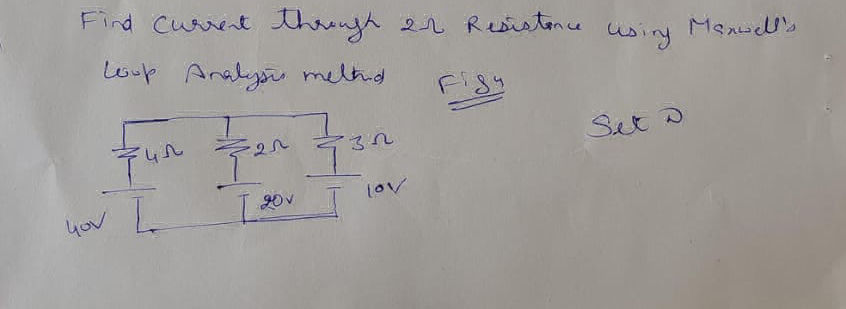 Find Current through 2Ω Resistance using Maxwell's
Loop Analysis method Fig 4
Set D
4Ω 2Ω 3Ω
40V 20V 10V